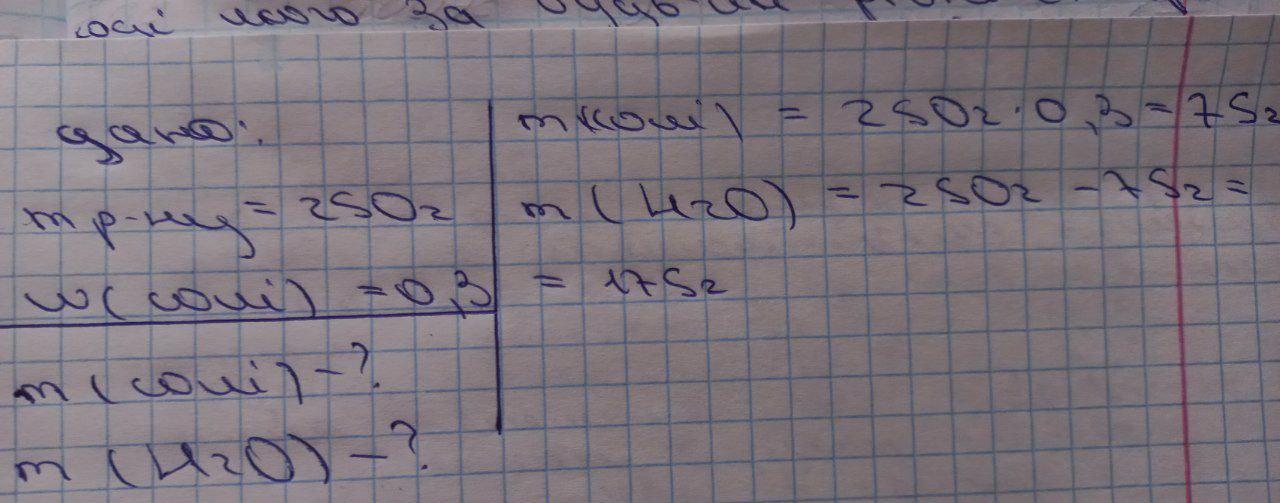 солі всього за
Дано:
m р-ну = 250г
w(солі) = 0,3
m(солі) - ?
m(H2O) - ?
m(солі) = 250г · 0,3 = 75г
m(H2O) = 250г - 75г =
= 175г